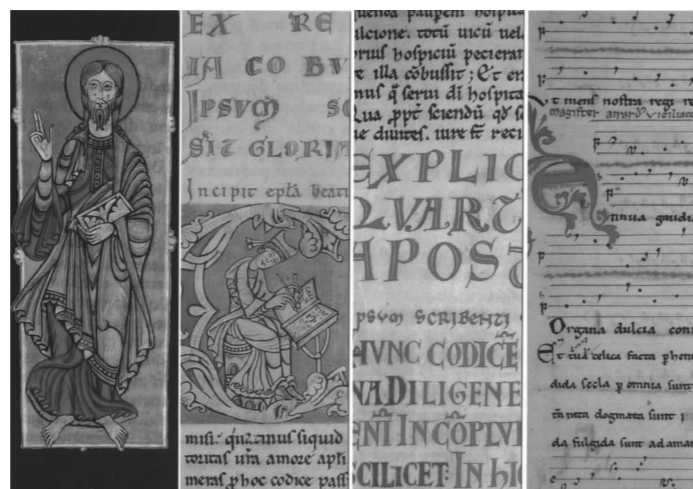 EX RE
IA CO BV
IPSVM SC
SIT GLORIA
Incipit epła beati
misi. quatinus siquid
toritas ura amore apłi
meras phoc codice pass
ulcione. totū uicū uel
prius hospiciū pecierat
e illa cōbussit; Et er
mus q̄ serui dī hospita
Qua ppt̄ sciendū qd̄
ue diuites. iure st̄ reci
EXPLIC
QVART
APOST
IPSVM SCRIBENTI
HVNC CODICĒ
NA DILIGENE
ENI IN CŌPLVI
SCILICET: IN HI
t mens nostra regi re
magister airard'
Annua gaudia
Organa dulcia con
Et celica facta
dida secla p omnia sunt
dogmata sunt i
da fulgida sunt ad aman